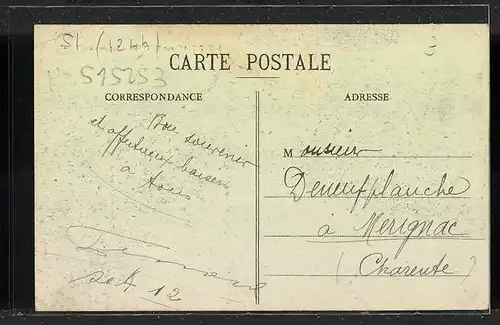 51 (1244)
S15253
CARTE POSTALE
CORRESPONDANCE
ADRESSE
Bon souvenir
et affectueux baisers
à tous
sett 12
Monsieur
Deneufplanche
à Merignac
(Charente)